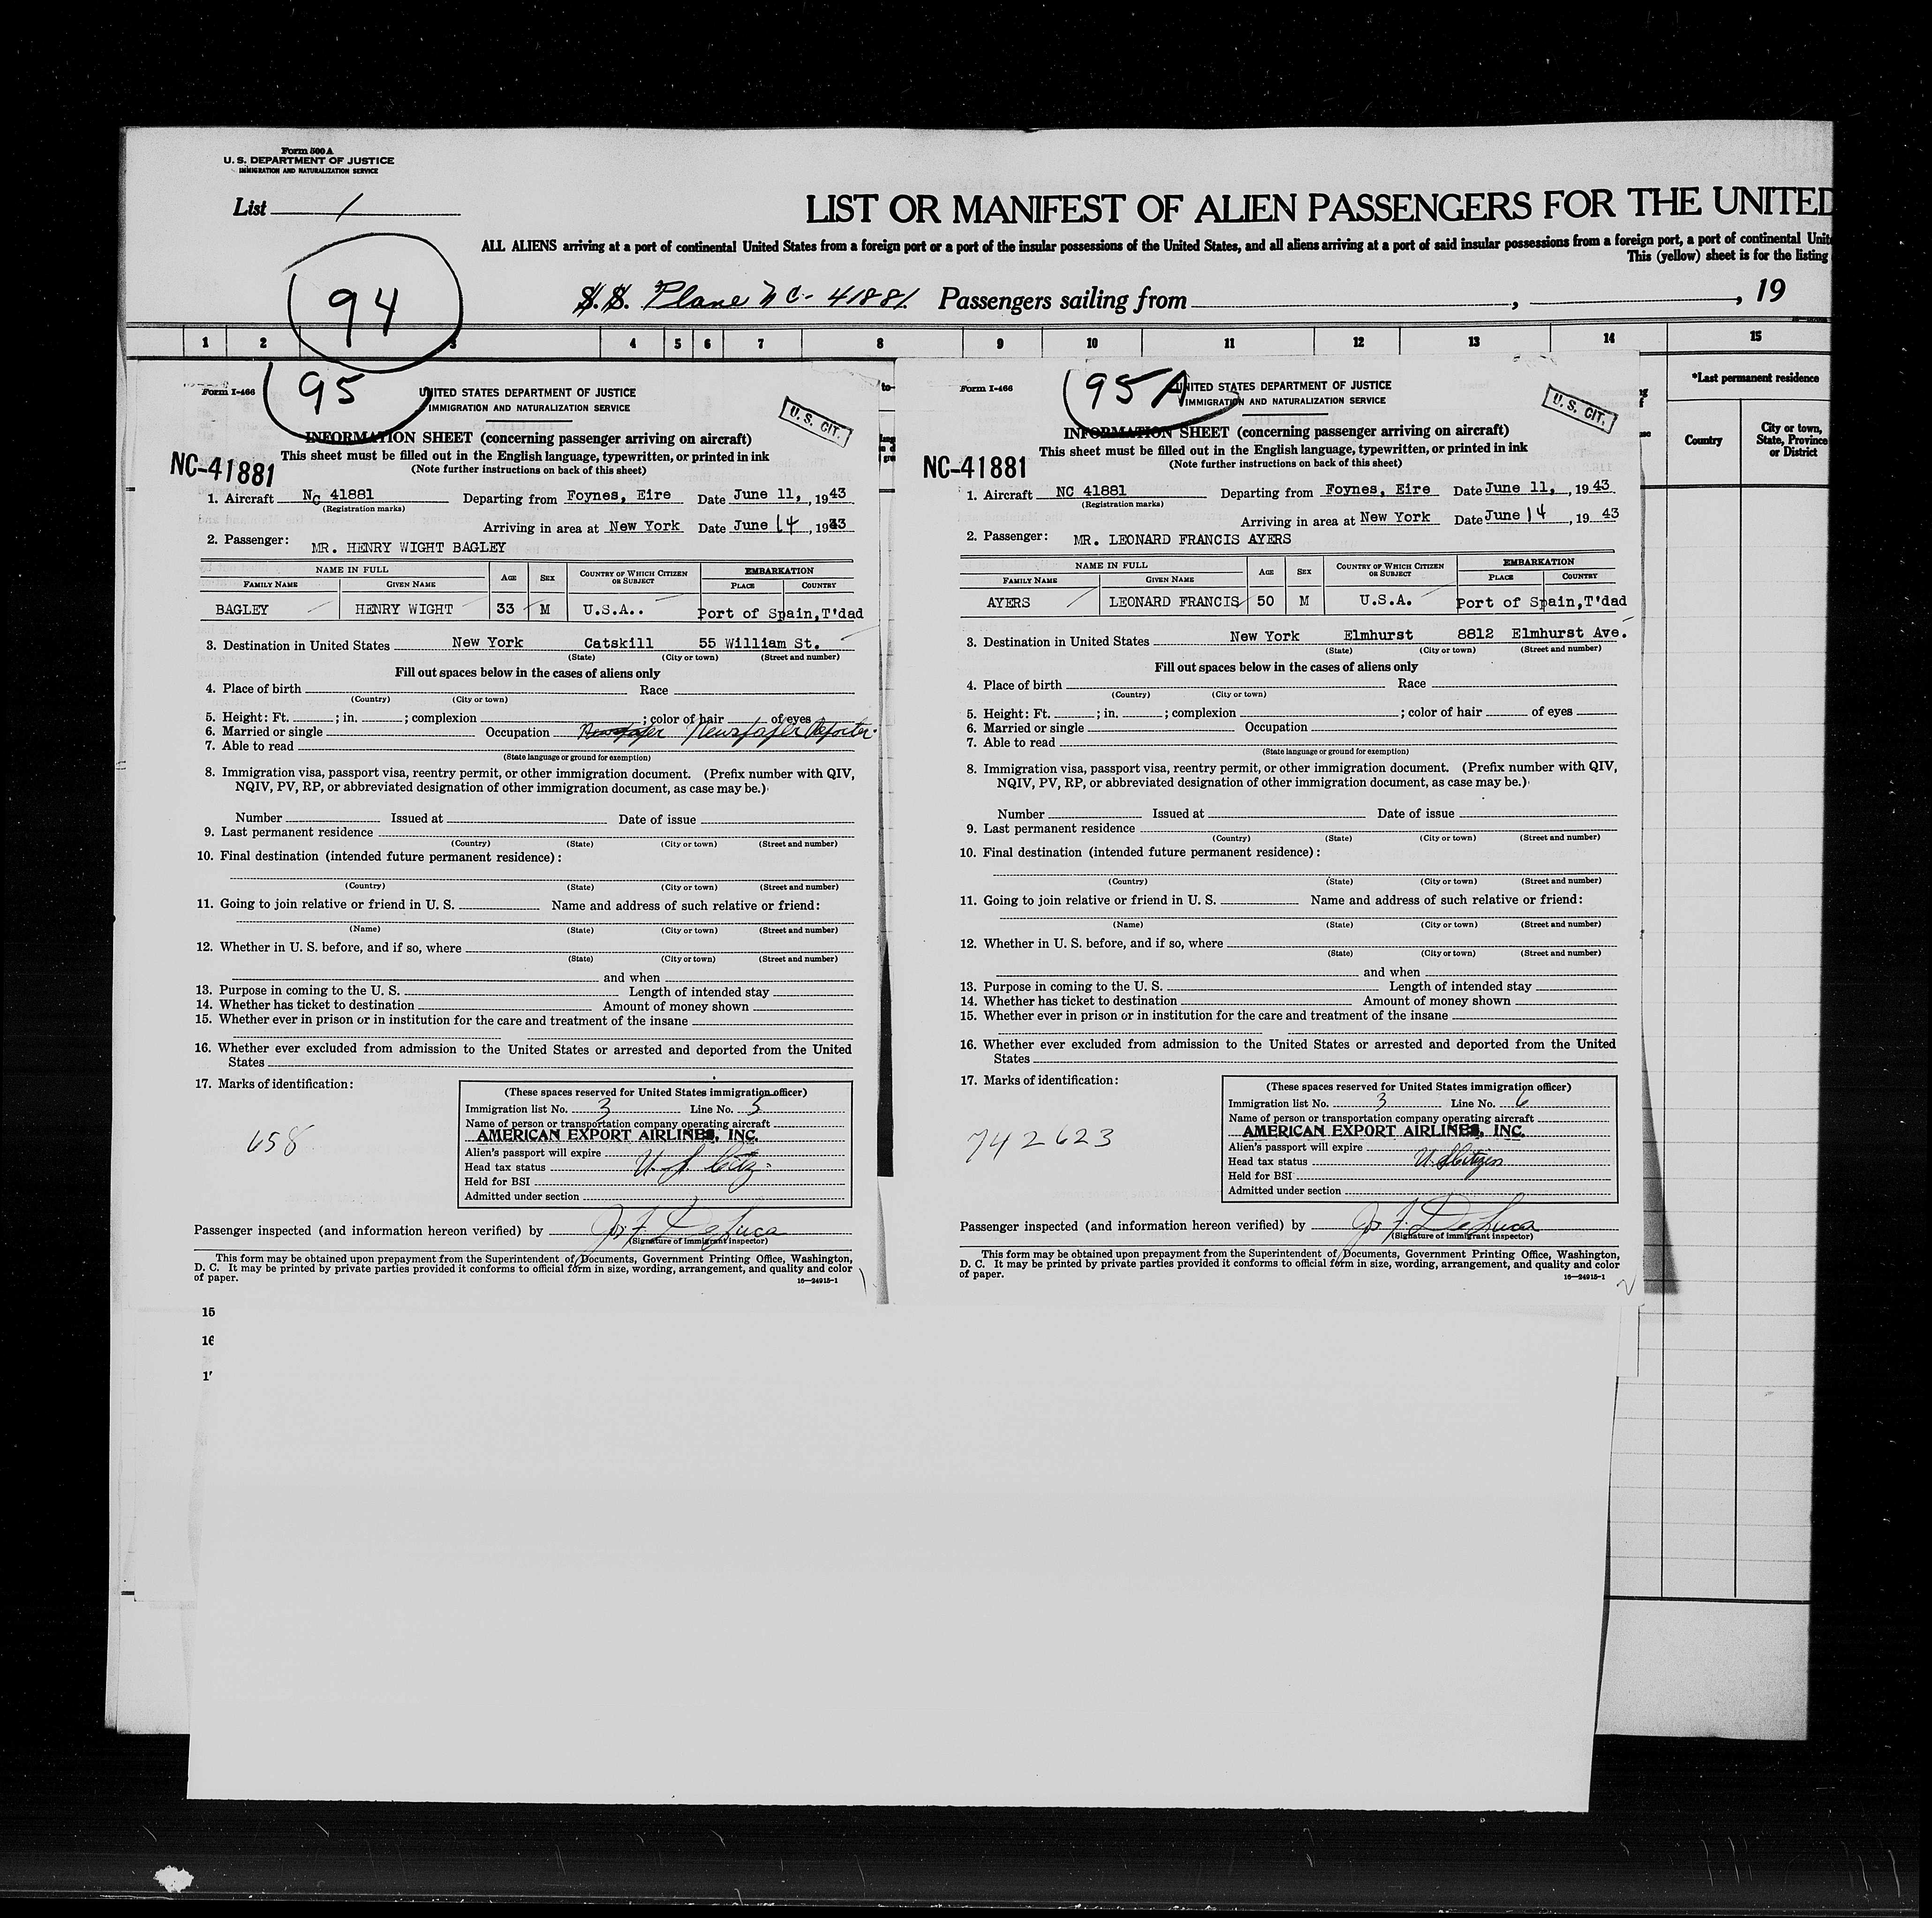 Form 500 A
U. S. DEPARTMENT OF JUSTICE
IMMIGRATION AND NATURALIZATION SERVICE
List 1
LIST OR MANIFEST OF ALIEN PASSENGERS FOR THE UNITED
ALL ALIENS arriving at a port of continental United States from a foreign port or a port of the insular possessions of the United States, and all aliens arriving at a port of said insular possessions from a foreign port, a port of continental Unit
This (yellow) sheet is for the listing
94
S.S. Plane NC-41881 Passengers sailing from , , 19
1 2 3 4 5 6 7 8 9 10 11 12 13 14 15
*Last permanent residence
Country
City or town, State, Province or District
Form I-466
95
UNITED STATES DEPARTMENT OF JUSTICE
IMMIGRATION AND NATURALIZATION SERVICE
U. S. CIT.
INFORMATION SHEET (concerning passenger arriving on aircraft)
This sheet must be filled out in the English language, typewritten, or printed in ink
(Note further instructions on back of this sheet)
NC-41881
1. Aircraft NC 41881 Departing from Foynes, Eire Date June 11, 1943
(Registration marks)
Arriving in area at New York Date June 14, 1943
2. Passenger: MR. HENRY WIGHT BAGLEY
NAME IN FULL AGE SEX COUNTRY OF WHICH CITIZEN OR SUBJECT EMBARKATION
FAMILY NAME GIVEN NAME PLACE COUNTRY
BAGLEY HENRY WIGHT 33 M U.S.A.. Port of Spain,T'dad
3. Destination in United States New York Catskill 55 William St.
(State) (City or town) (Street and number)
Fill out spaces below in the cases of aliens only
4. Place of birth Race
(Country) (City or town)
5. Height: Ft. ; in. ; complexion ; color of hair of eyes
6. Married or single Occupation Newspaper Newspaper Reporter
7. Able to read
(State language or ground for exemption)
8. Immigration visa, passport visa, reentry permit, or other immigration document. (Prefix number with QIV, NQIV, PV, RP, or abbreviated designation of other immigration document, as case may be.)
Number Issued at Date of issue
9. Last permanent residence
(Country) (State) (City or town) (Street and number)
10. Final destination (intended future permanent residence):
(Country) (State) (City or town) (Street and number)
11. Going to join relative or friend in U. S. Name and address of such relative or friend:
(Name) (State) (City or town) (Street and number)
12. Whether in U. S. before, and if so, where
(State) (City or town) (Street and number)
and when
13. Purpose in coming to the U. S. Length of intended stay
14. Whether has ticket to destination Amount of money shown
15. Whether ever in prison or in institution for the care and treatment of the insane
16. Whether ever excluded from admission to the United States or arrested and deported from the United
States
17. Marks of identification:
658
(These spaces reserved for United States immigration officer)
Immigration list No. 3 Line No. 5
Name of person or transportation company operating aircraft
AMERICAN EXPORT AIRLINES, INC.
Alien's passport will expire
Head tax status U. S. Citz.
Held for BSI
Admitted under section
Passenger inspected (and information hereon verified) by Jos. F. DeLuca
(Signature of immigrant inspector)
This form may be obtained upon prepayment from the Superintendent of Documents, Government Printing Office, Washington,
D. C. It may be printed by private parties provided it conforms to official form in size, wording, arrangement, and quality and color
of paper.
16—24915-1
Form I-466
95A
UNITED STATES DEPARTMENT OF JUSTICE
IMMIGRATION AND NATURALIZATION SERVICE
U. S. CIT.
INFORMATION SHEET (concerning passenger arriving on aircraft)
This sheet must be filled out in the English language, typewritten, or printed in ink
(Note further instructions on back of this sheet)
NC-41881
1. Aircraft NC 41881 Departing from Foynes, Eire Date June 11, 1943
(Registration marks)
Arriving in area at New York Date June 14, 1943
2. Passenger: MR. LEONARD FRANCIS AYERS
NAME IN FULL AGE SEX COUNTRY OF WHICH CITIZEN OR SUBJECT EMBARKATION
FAMILY NAME GIVEN NAME PLACE COUNTRY
AYERS LEONARD FRANCIS 50 M U.S.A. Port of Spain,T'dad
3. Destination in United States New York Elmhurst 8812 Elmhurst Ave.
(State) (City or town) (Street and number)
Fill out spaces below in the cases of aliens only
4. Place of birth Race
(Country) (City or town)
5. Height: Ft. ; in. ; complexion ; color of hair of eyes
6. Married or single Occupation
7. Able to read
(State language or ground for exemption)
8. Immigration visa, passport visa, reentry permit, or other immigration document. (Prefix number with QIV,
NQIV, PV, RP, or abbreviated designation of other immigration document, as case may be.)
Number Issued at Date of issue
9. Last permanent residence
(Country) (State) (City or town) (Street and number)
10. Final destination (intended future permanent residence):
(Country) (State) (City or town) (Street and number)
11. Going to join relative or friend in U. S. Name and address of such relative or friend:
(Name) (State) (City or town) (Street and number)
12. Whether in U. S. before, and if so, where
(State) (City or town) (Street and number)
and when
13. Purpose in coming to the U. S. Length of intended stay
14. Whether has ticket to destination Amount of money shown
15. Whether ever in prison or in institution for the care and treatment of the insane
16. Whether ever excluded from admission to the United States or arrested and deported from the United
States
17. Marks of identification:
742623
(These spaces reserved for United States immigration officer)
Immigration list No. 3 Line No. 6
Name of person or transportation company operating aircraft
AMERICAN EXPORT AIRLINES, INC.
Alien's passport will expire
Head tax status U. S. Citizen
Held for BSI
Admitted under section
Passenger inspected (and information hereon verified) by Jos. F. DeLuca
(Signature of immigrant inspector)
This form may be obtained upon prepayment from the Superintendent of Documents, Government Printing Office, Washington,
D. C. It may be printed by private parties provided it conforms to official form in size, wording, arrangement, and quality and color
of paper.
16—24915-1
15
16
17